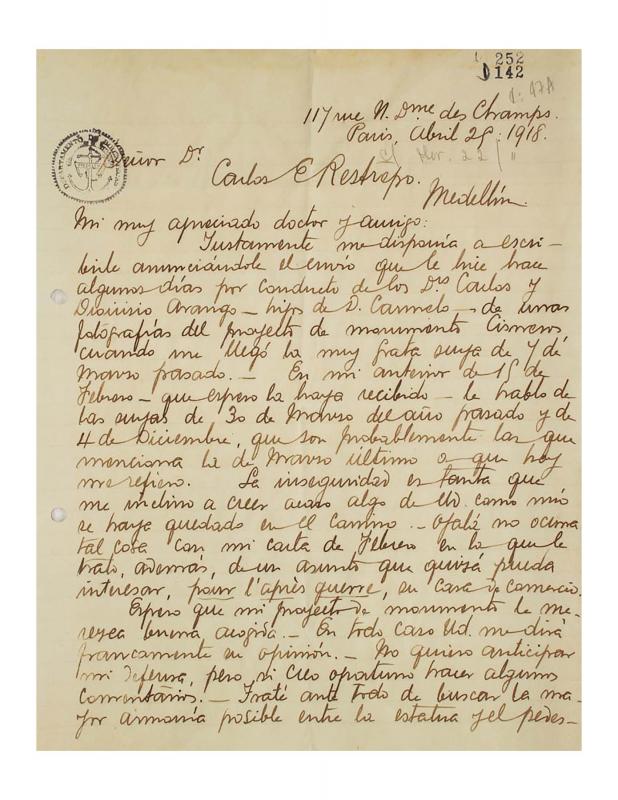 252
142
1: 97A
117 rue N. Dme des Champs.
Paris, Abril 25: 1918.
Señor Dr.
Carlos E Restrepo.
Medellín.
Mi muy apreciado doctor y amigo:
Justamente me disponía a escri-
birle anunciándole el envío que le hice hace
algunos días por conducto de los Drs Carlos y
Dionisio Arango – hijos de D. Carmelo – de unas
fotografías del proyecto de monumento Cisneros,
cuando me llegó la muy grata suya de 7 de
Marzo pasado. – En mi anterior de 15 de
Febrero – que espero la haya recibido – le hablo de
las suyas de 30 de Marzo del año pasado y de
4 de Diciembre, que son probablemente las que
menciona la de Marzo último a que hoy
me refiero. La inseguridad es tanta que
me inclino a creer acaso algo de Ud. como mío
se haya quedado en el camino. – Ojalá no ocurra
tal cosa con mi carta de Febrero en la que le
trato, además, de un asunto que quizá pueda
interesar, pour l'après guerre, su casa de comercio.
Espero que mi proyecto de monumento le me-
rezca buena acogida. – En todo caso Ud. me dirá
francamente su opinión. – No quiero anticipar
mi defensa, pero si creo oportuno hacer algunos
comentarios. – Traté ante todo de buscar la ma-
yor armonía posible entre la estatua y el pedes-